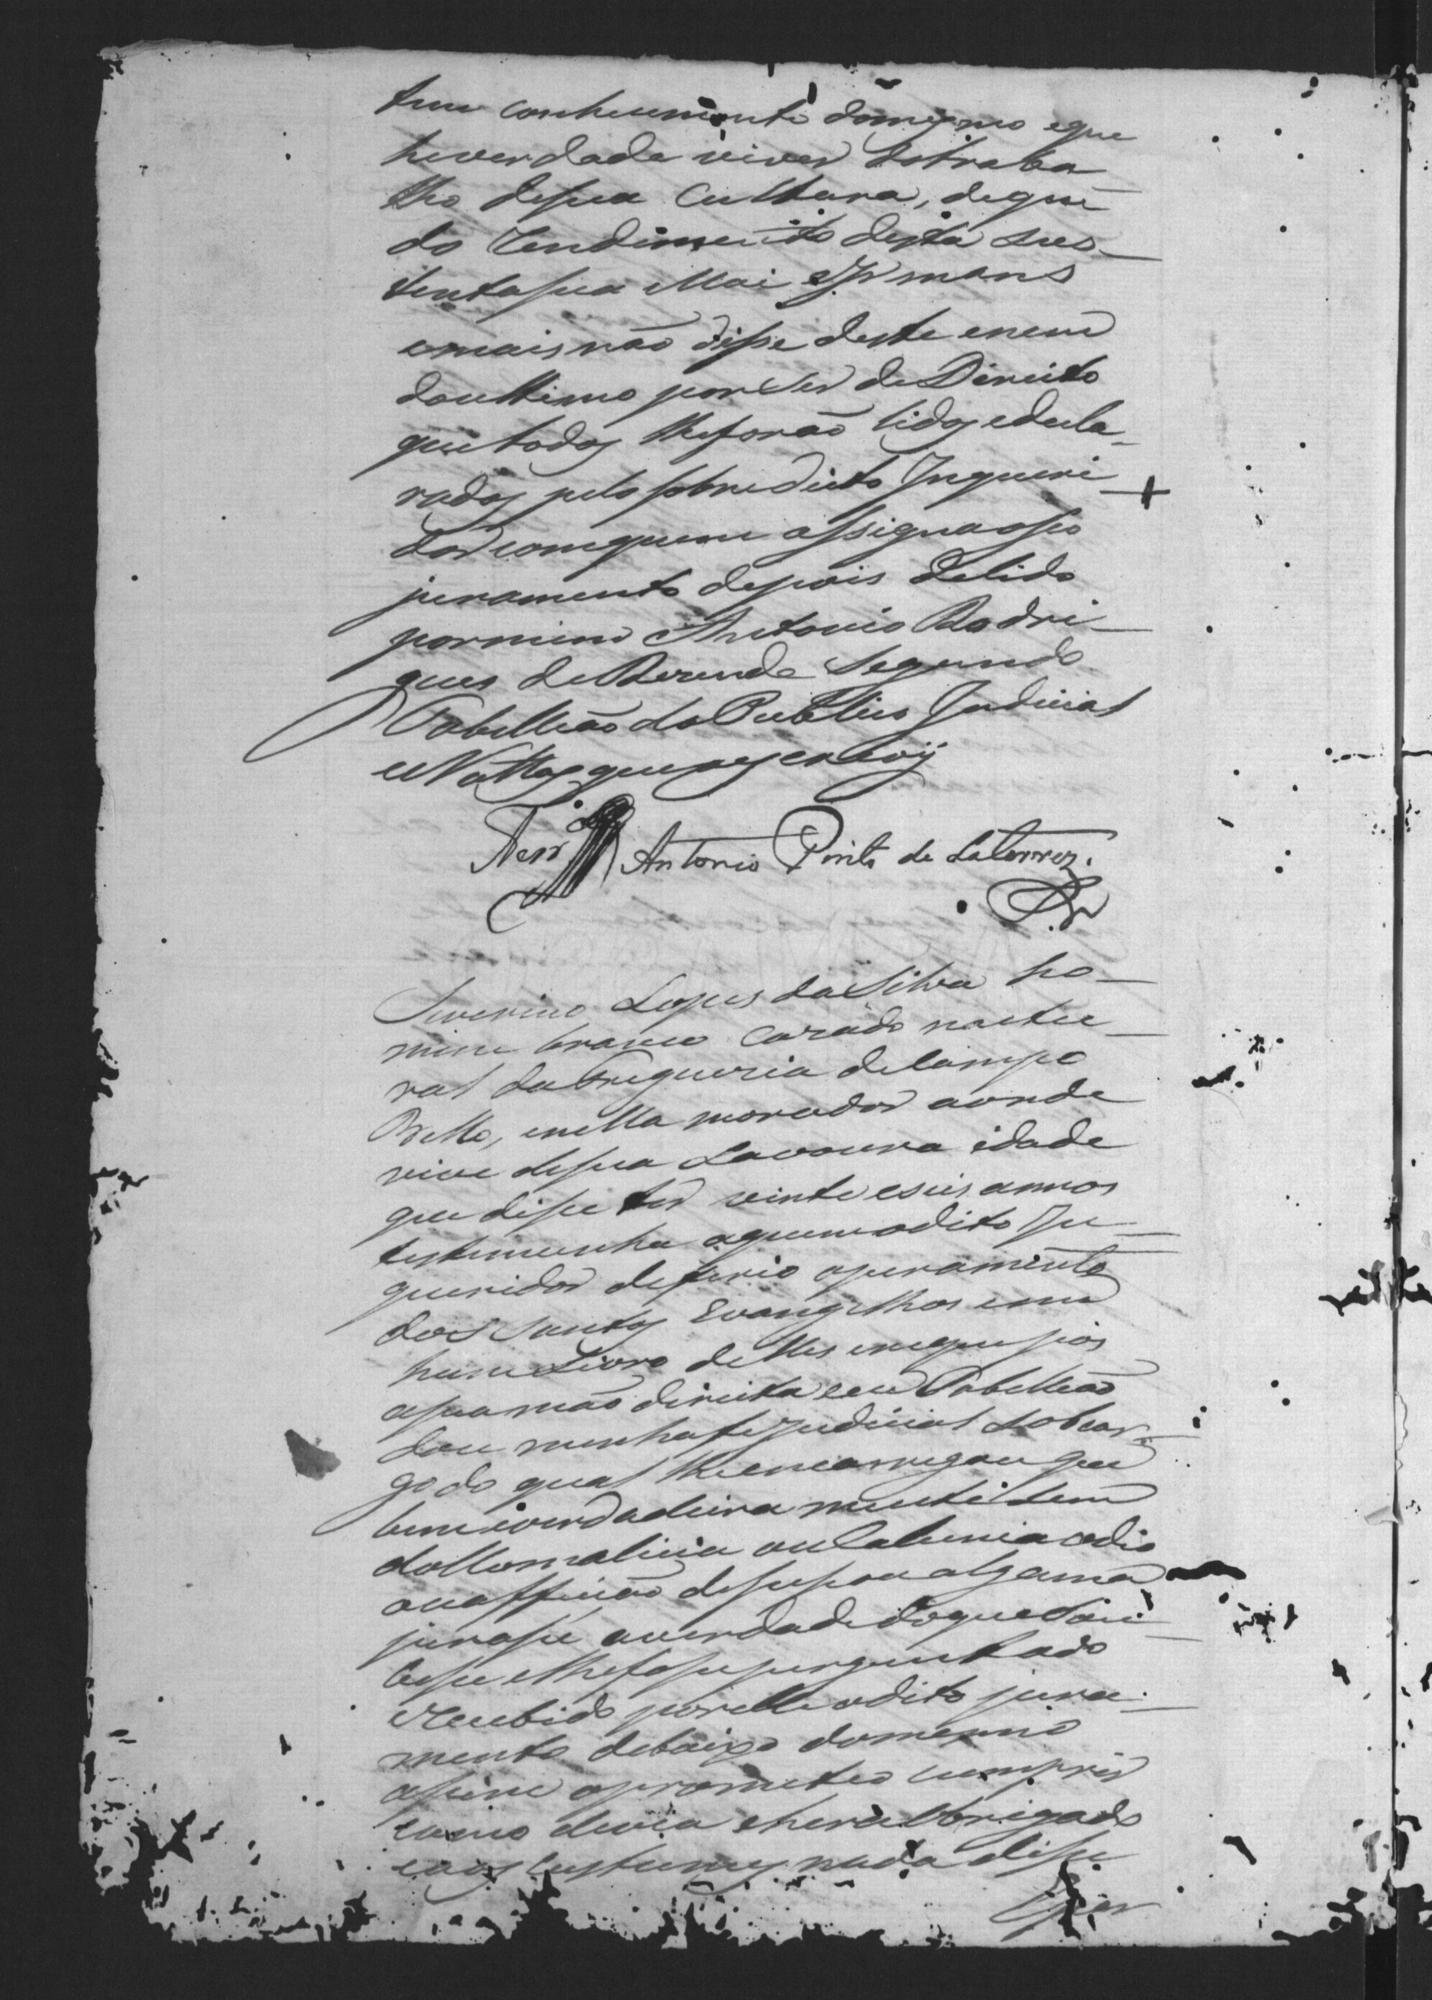 tem conhecimento domesmo eque
heverdade viver dotraba
lho desua Cultura, deque
do Rendimento desta sus-
tenta sua Mai e Irmans
emais não disse deste enem
doultimo por ser de Direito
que todos lheforão lidos edecla-
rados pelo sobredicto Inqueri-
dor comquem assignaoseo
juramento depois delido
pormim Antonio Rodri-
gues de Rezende Segundo
Tabelleão do Publico Judicial
e Nottas que oescrevÿ
Antonio Pinto de Laterroz.
Severino Lopes da Silva ho-
mem branco Cazado natu-
ral da Freguezia de Campo
Bello, enella morador aonde
vive desua Lavoura idade
que disse ter vinte eseis annos
testemunha aquem odito In-
queridor deferio ojuramento
dos Santos Evangelhos em
hum Livro delles emque pos
asua mão direita eeu Tabelleão
dou minhafe Judicial Socar-
go do qual lheencarregou que
bem everdadeiramente sem
dollo malicia ou Calunia odio
ouaffeição desuspeu algama
jurasse averdade doque Sou-
besse elhefosse perguntado
Recebido porelle odito jura-
mento debaixo domesmo
assim oprometeo cumprir
como devia ehera Obrigado
eaos Custumes nada disse